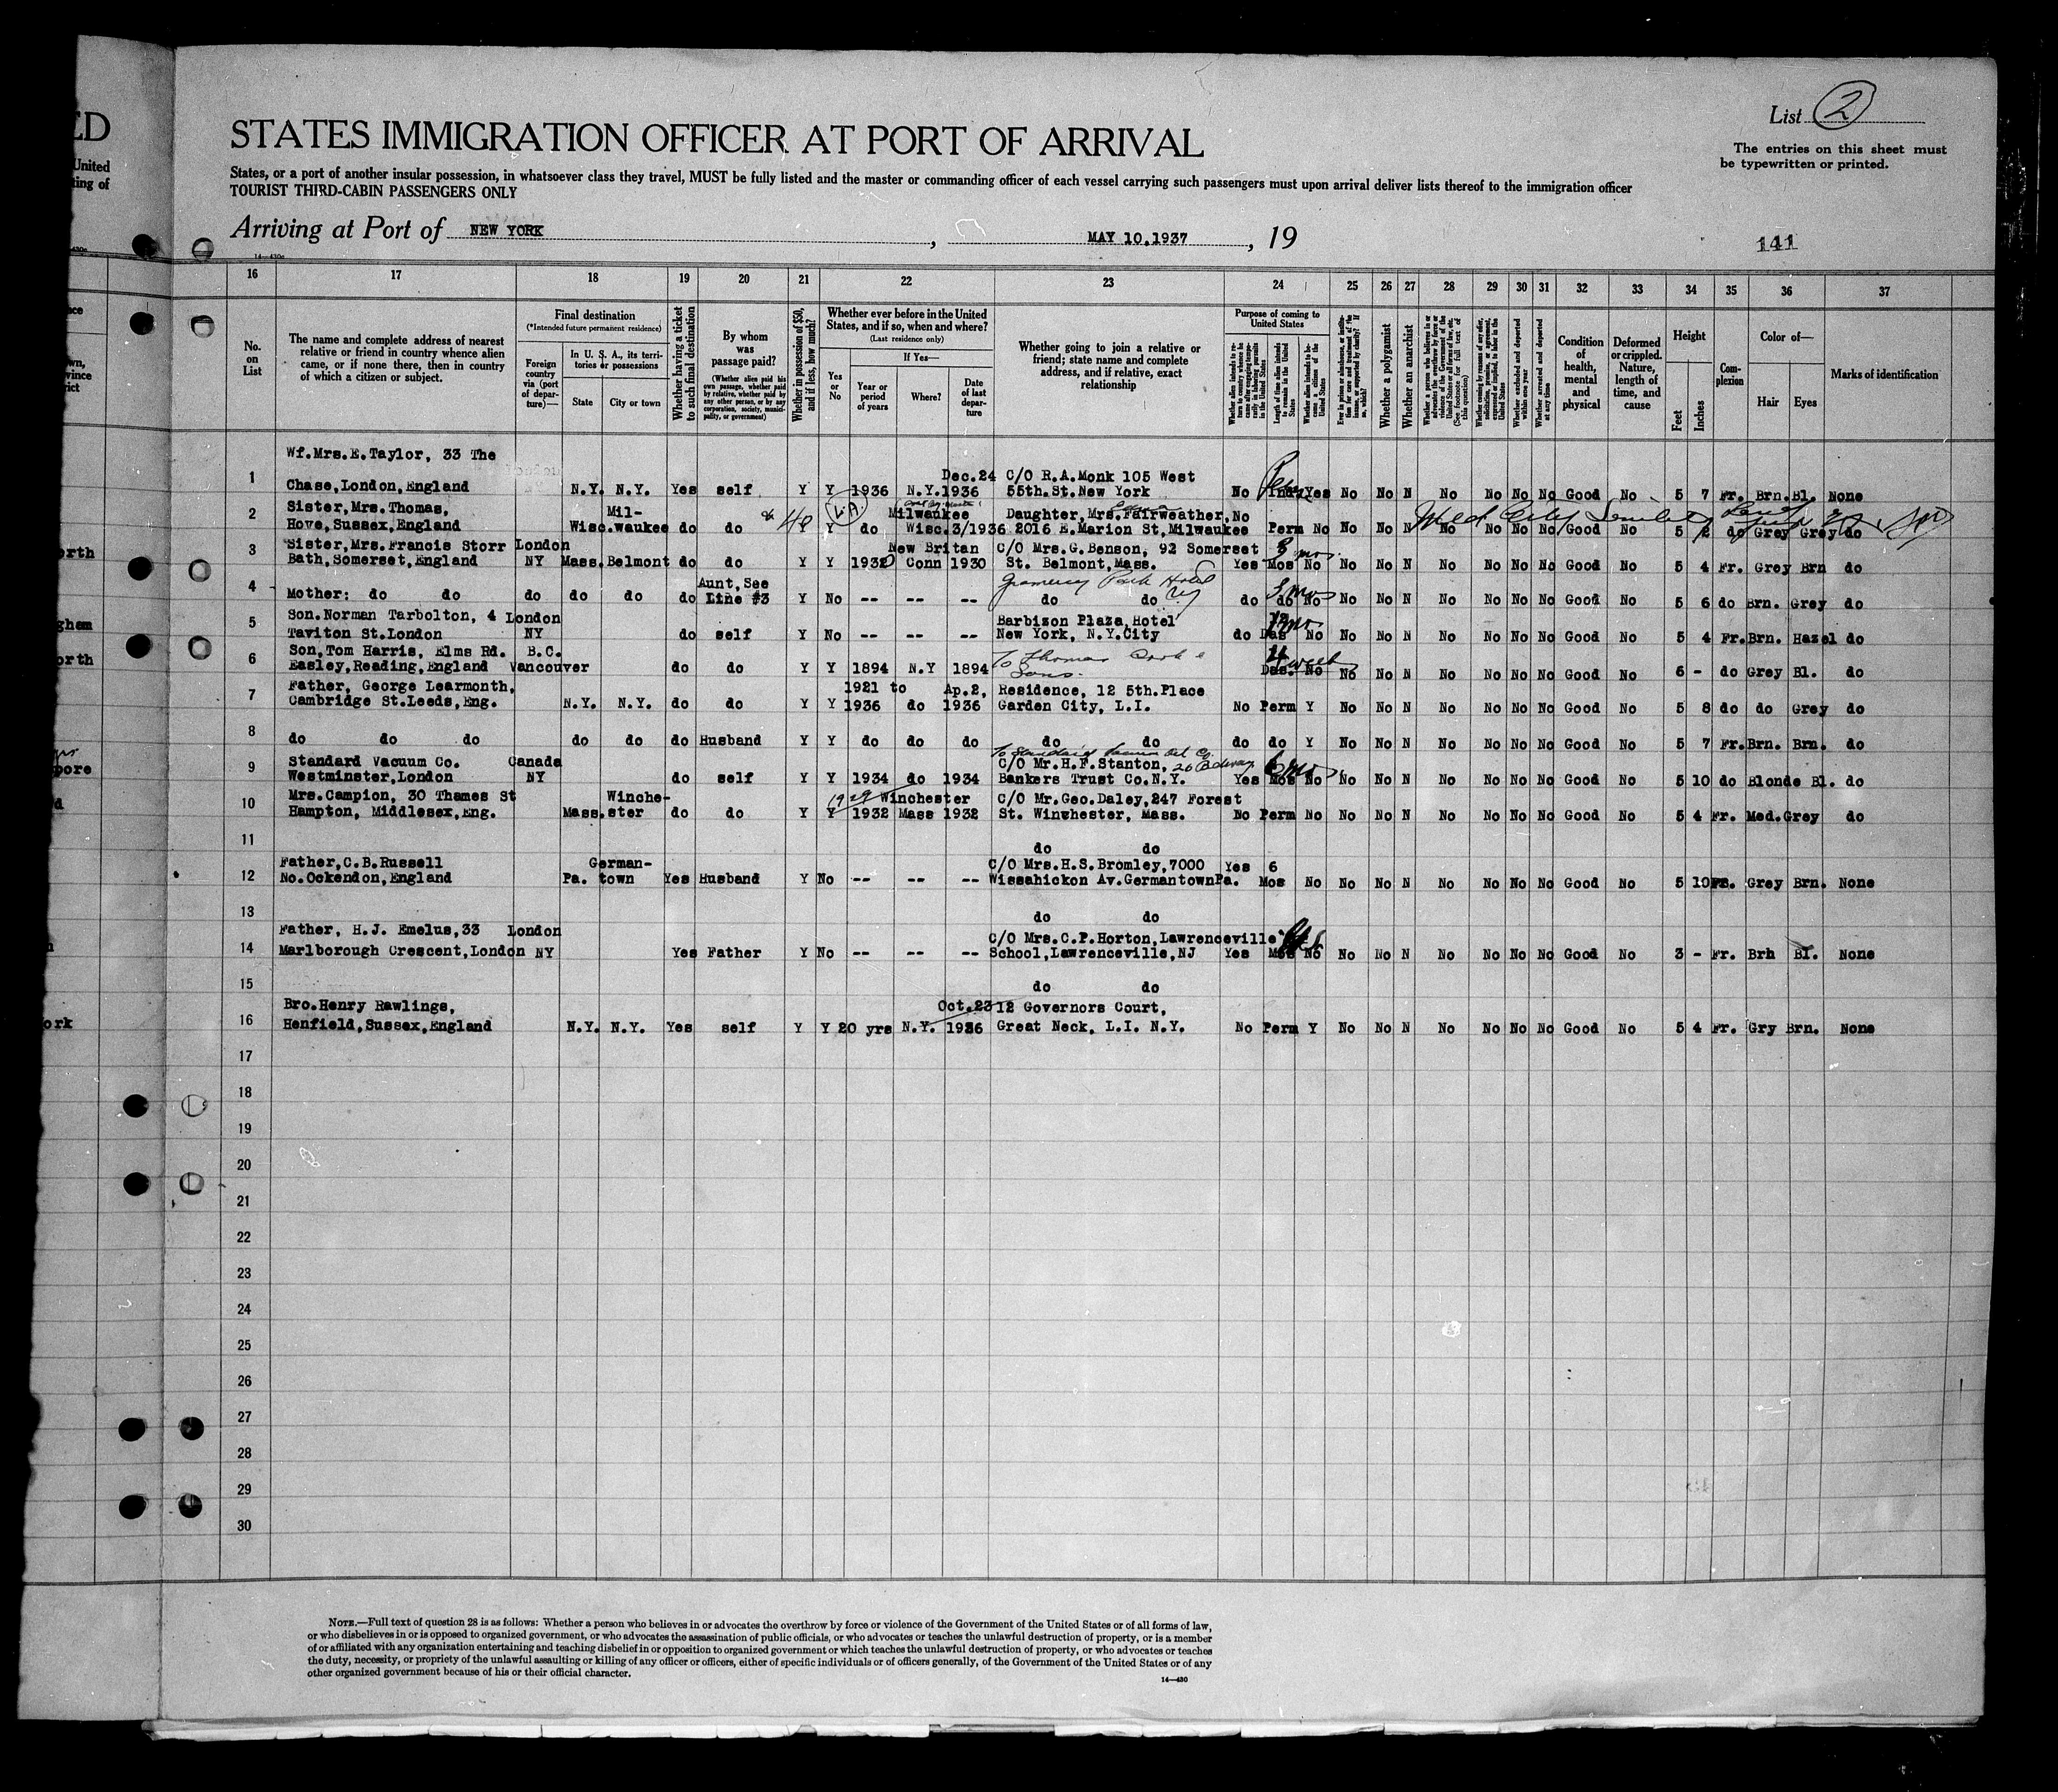 ED
United
ting of
List 2
STATES IMMIGRATION OFFICER AT PORT OF ARRIVAL
The entries on this sheet must
be typewritten or printed.
States, or a port of another insular possession, in whatsoever class they travel, MUST be fully listed and the master or commanding officer of each vessel carrying such passengers must upon arrival deliver lists thereof to the immigration officer
TOURIST THIRD-CABIN PASSENGERS ONLY
Arriving at Port of NEW YORK , MAY 10,1937 , 19
141
16 17 18 19 20 21 22 23 24 25 26 27 28 29 30 31 32 33 34 35 36 37
No. on List
The name and complete address of nearest
relative or friend in country whence alien
came, or if none there, then in country
of which a citizen or subject.
Final destination
(*Intended future permanent residence)
Foreign country via (port of departure)—
In U. S. A., its territories or possessions
State
City or town
Whether having a ticket to such final destination
By whom was passage paid?
(Whether alien paid his own passage, whether paid by relative, whether paid by any other person, or by any corporation, society, municipality, or government)
Whether in possession of $50, and if less, how much?
Whether ever before in the United
States, and if so, when and where?
(Last residence only)
Yes or No
If Yes—
Year or period of years
Where?
Date of last departure
Whether going to join a relative or
friend; state name and complete
address, and if relative, exact
relationship
Purpose of coming to United States
Whether a polygamist
Whether an anarchist
Condition of health, mental and physical
Deformed or crippled. Nature, length of time, and cause
Height
Feet
Inches
Complexion
Color of—
Hair
Eyes
Marks of identification
Wf.Mrs.E.Taylor, 33 The
Dec.24 C/O R.A.Monk 105 West
1 Chase,London,England N.Y. N.Y. Yes self Y Y 1936 N.Y.1936 55th.St.New York No Yes No No N No No No No Good No 5 7 Fr. Brn.Bl. None
Sister,Mrs.Thomas, Mil- Milwaukee Daughter,Mrs.Fairweather,No
2 Hove,Sussex,England Wisc.waukee do do 40 Y do Wisc.3/1936 2016 E.Marion St,Milwaukee Perm No No No N No No No No Good No 5 2 do Grey Grey do
Sister,Mrs.Francis Storr London New Britan C/O Mrs.G.Benson, 92 Somerset 3 mos.
3 Bath,Somerset,England NY Mass.Belmont do do Y Y 1930 Conn 1930 St. Belmont,Mass. Yes Mos No No No N No No No No Good No 5 4 Fr. Grey Brn do
Aunt,See Gramercy Park Hotel NY 3 mos
4 Mother: do do do do do do Line #3 Y No -- -- -- do do do do No No No N No No No No Good No 5 6 do Brn. Grey do
Son.Norman Tarbolton, 4 London Barbizon Plaza,Hotel
5 Taviton St.London NY do self Y No -- -- -- New York, N.Y.City do No No No N No No No No Good No 5 4 Fr.Brn. Hazel do
Son,Tom Harris, Elms Rd. B.C. To Thomas Cook &
6 Easley,Reading,England Vancouver do do Y Y 1894 N.Y 1894 Sons. Das. No No No N No No No No Good No 6 - do Grey Bl. do
Father, George Learmonth, 1921 to Ap.2, Residence, 12 5th.Place
7 Cambridge St.Leeds,Eng. N.Y. N.Y. do do Y Y 1936 do 1936 Garden City, L.I. No Perm Y No No N No No No No Good No 5 8 do do Grey do
8 do do do do do do Husband Y Y do do do do do do do Y No No N No No No No Good No 5 7 Fr.Brn. Brn. do
To Standard Vacuum Oil Co.
Standard Vacuum Co. Canada C/O Mr.H.F.Stanton, 26 Bdway
9 Westminster,London NY do self Y Y 1934 do 1934 Bankers Trust Co.N.Y. Yes Mos No No No N No No No No Good No 5 10 do Blonde Bl. do
Mrs.Campion, 30 Thames St Winche- 1929 Winchester C/O Mr.Geo.Daley,247 Forest
10 Hampton, Middlesex,Eng. Mass.ster do do Y Y 1932 Mass 1932 St. Winchester, Mass. No Perm No No No N No No No No Good No 5 4 Fr. Med.Grey do
11 do do
Father,C.B.Russell German- C/O Mrs.H.S.Bromley,7000 Yes 6
12 No.Ockendon,England Pa. town Yes Husband Y No -- -- -- Wissahickon Av.GermantownPa. Mos No No No N No No No No Good No 5 10 Fr. Grey Brn. None
13 do do
Father, H.J. Emelus,33 London C/O Mrs.C.P.Horton,Lawrenceville
14 Marlborough Crescent,London NY Yes Father Y No -- -- -- School,Lawrenceville,NJ Yes Mos No No No N No No No No Good No 3 - Fr. Brh Bl. None
15 do do
Bro.Henry Rawlings, Oct.23 12 Governors Court,
16 Henfield,Sussex,England N.Y. N.Y. Yes self Y Y 20 yrs N.Y. 1936 Great Neck, L.I. N.Y. No Perm Y No No N No No No No Good No 5 4 Fr. Gry Brn. None
17
18
19
20
21
22
23
24
25
26
27
28
29
30
NOTE.—Full text of question 28 is as follows: Whether a person who believes in or advocates the overthrow by force or violence of the Government of the United States or of all forms of law,
or who disbelieves in or is opposed to organized government, or who advocates the assassination of public officials, or who advocates or teaches the unlawful destruction of property, or is a member
of or affiliated with any organization entertaining and teaching disbelief in or opposition to organized government or which teaches the unlawful destruction of property, or who advocates or teaches
the duty, necessity, or propriety of the unlawful assaulting or killing of any officer or officers, either of specific individuals or of officers generally, of the Government of the United States or of any
other organized government because of his or their official character.
14—430